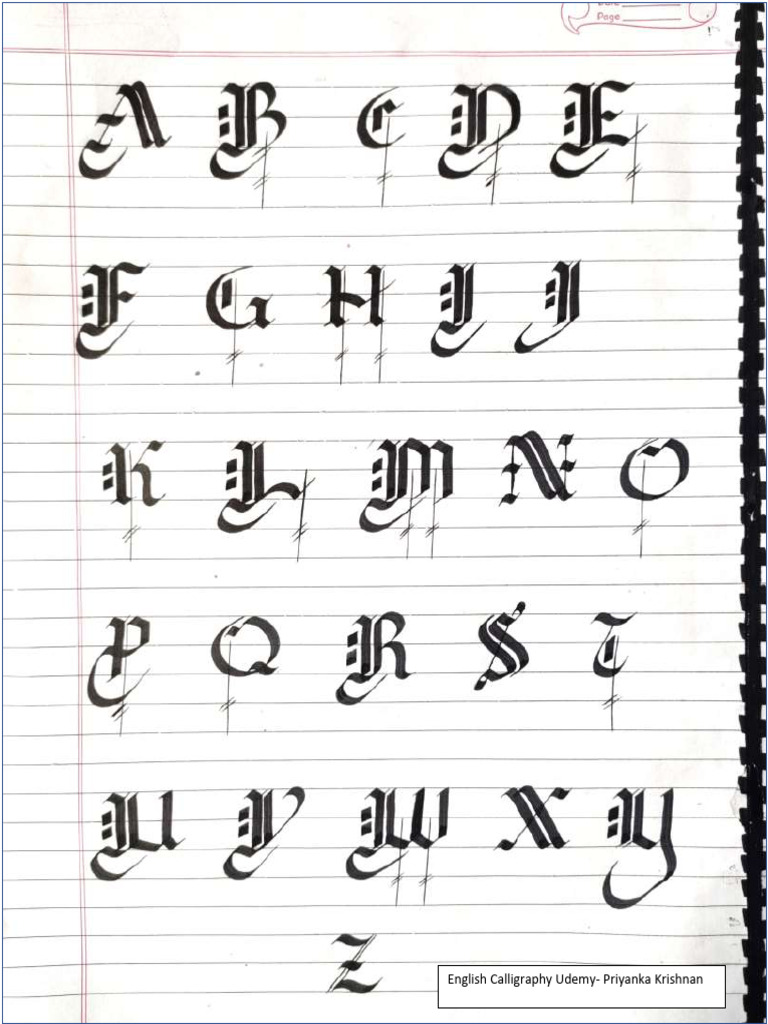 Page
A B C D E
F G H I J
K L M N O
P Q R S T
U V W X Y
Z
English Calligraphy Udemy- Priyanka Krishnan